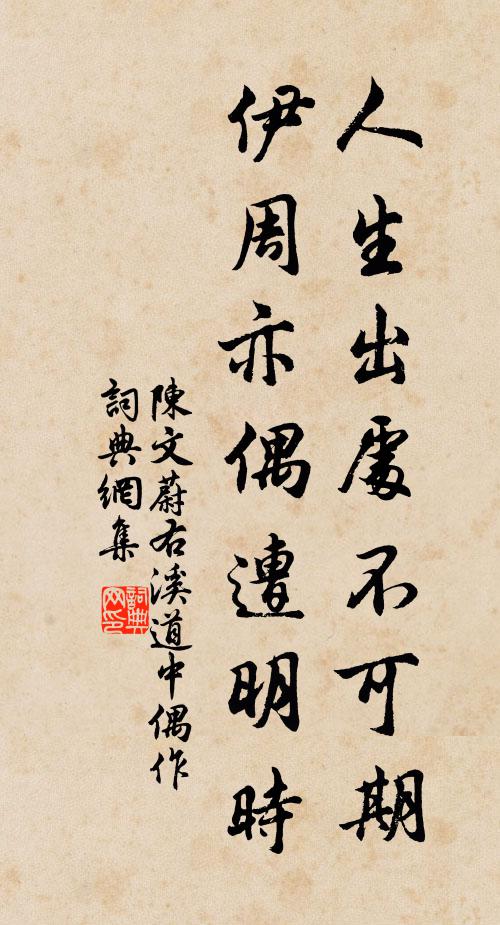 人生出處不可期
伊周亦偶遭明時
陳文蔚右溪道中偶作
詞典網集
詞典网印